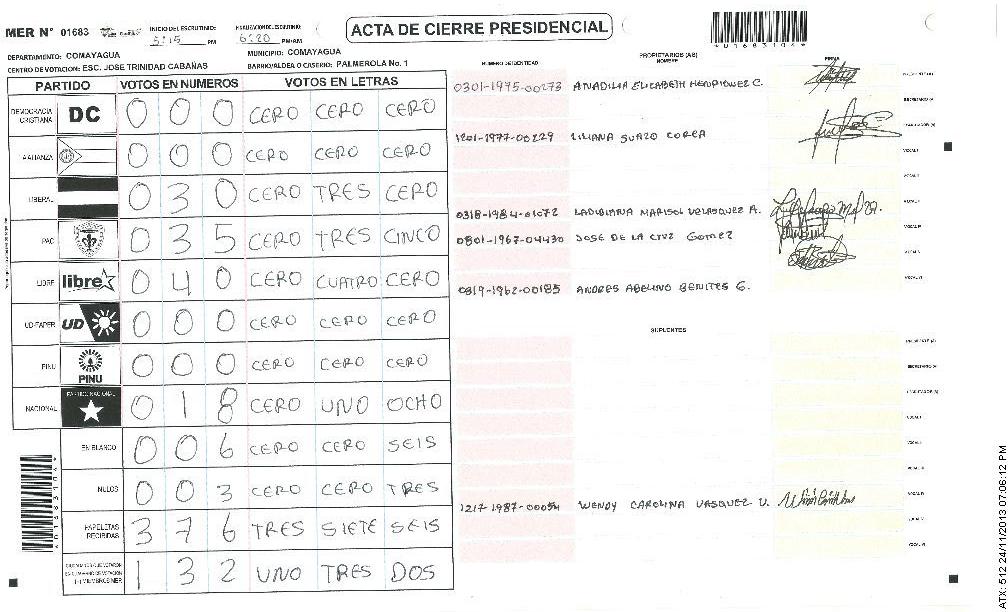 MER N° 01683
INICIO DEL ESCRUTINIO: 5:15 PM
FINALIZACION DEL ESCRUTINIO: 6:20 PM/AM
ACTA DE CIERRE PRESIDENCIAL
*01683104*
DEPARTAMENTO: COMAYAGUA
MUNICIPIO: COMAYAGUA
CENTRO DE VOTACION: ESC. JOSE TRINIDAD CABAÑAS
BARRIO/ALDEA O CASERIO: PALMEROLA No. 1
PARTIDO VOTOS EN NUMEROS VOTOS EN LETRAS
DEMOCRACIA CRISTIANA DC 0 0 0 CERO CERO CERO
AALIANZA 0 0 0 CERO CERO CERO
LIBERAL 0 3 0 CERO TRES CERO
PAC 0 3 5 CERO TRES CINCO
LIBRE libre 0 4 0 CERO CUATRO CERO
UD-FAPER UD 0 0 0 CERO CERO CERO
PINU PINU 0 0 0 CERO CERO CERO
NACIONAL PARTIDO NACIONAL 0 1 8 CERO UNO OCHO
EN BLANCO 0 0 6 CERO CERO SEIS
NULOS 0 0 3 CERO CERO TRES
PAPELETAS RECIBIDAS 3 7 6 TRES SIETE SEIS
1 3 2 UNO TRES DOS
*01683104*
NUMERO DE IDENTIDAD
PROPIETARIOS (AS)
NOMBRE
FIRMA
0301-1975-00273 ANADILIA ELIZABETH HENRIQUEZ C.
1201-1977-00229 LILIANA SUAZO COREA
0318-1984-01072 LADIBIANA MARISOL VELASQUEZ A.
0801-1967-04430 JOSE DE LA CRUZ GOMEZ
0319-1962-00185 ANDRES ABELINO BENITES G.
SUPLENTES
1217-1987-00054 WENDY CAROLINA VASQUEZ V.
ATX: 512 24/11/2013 07:06:12 PM